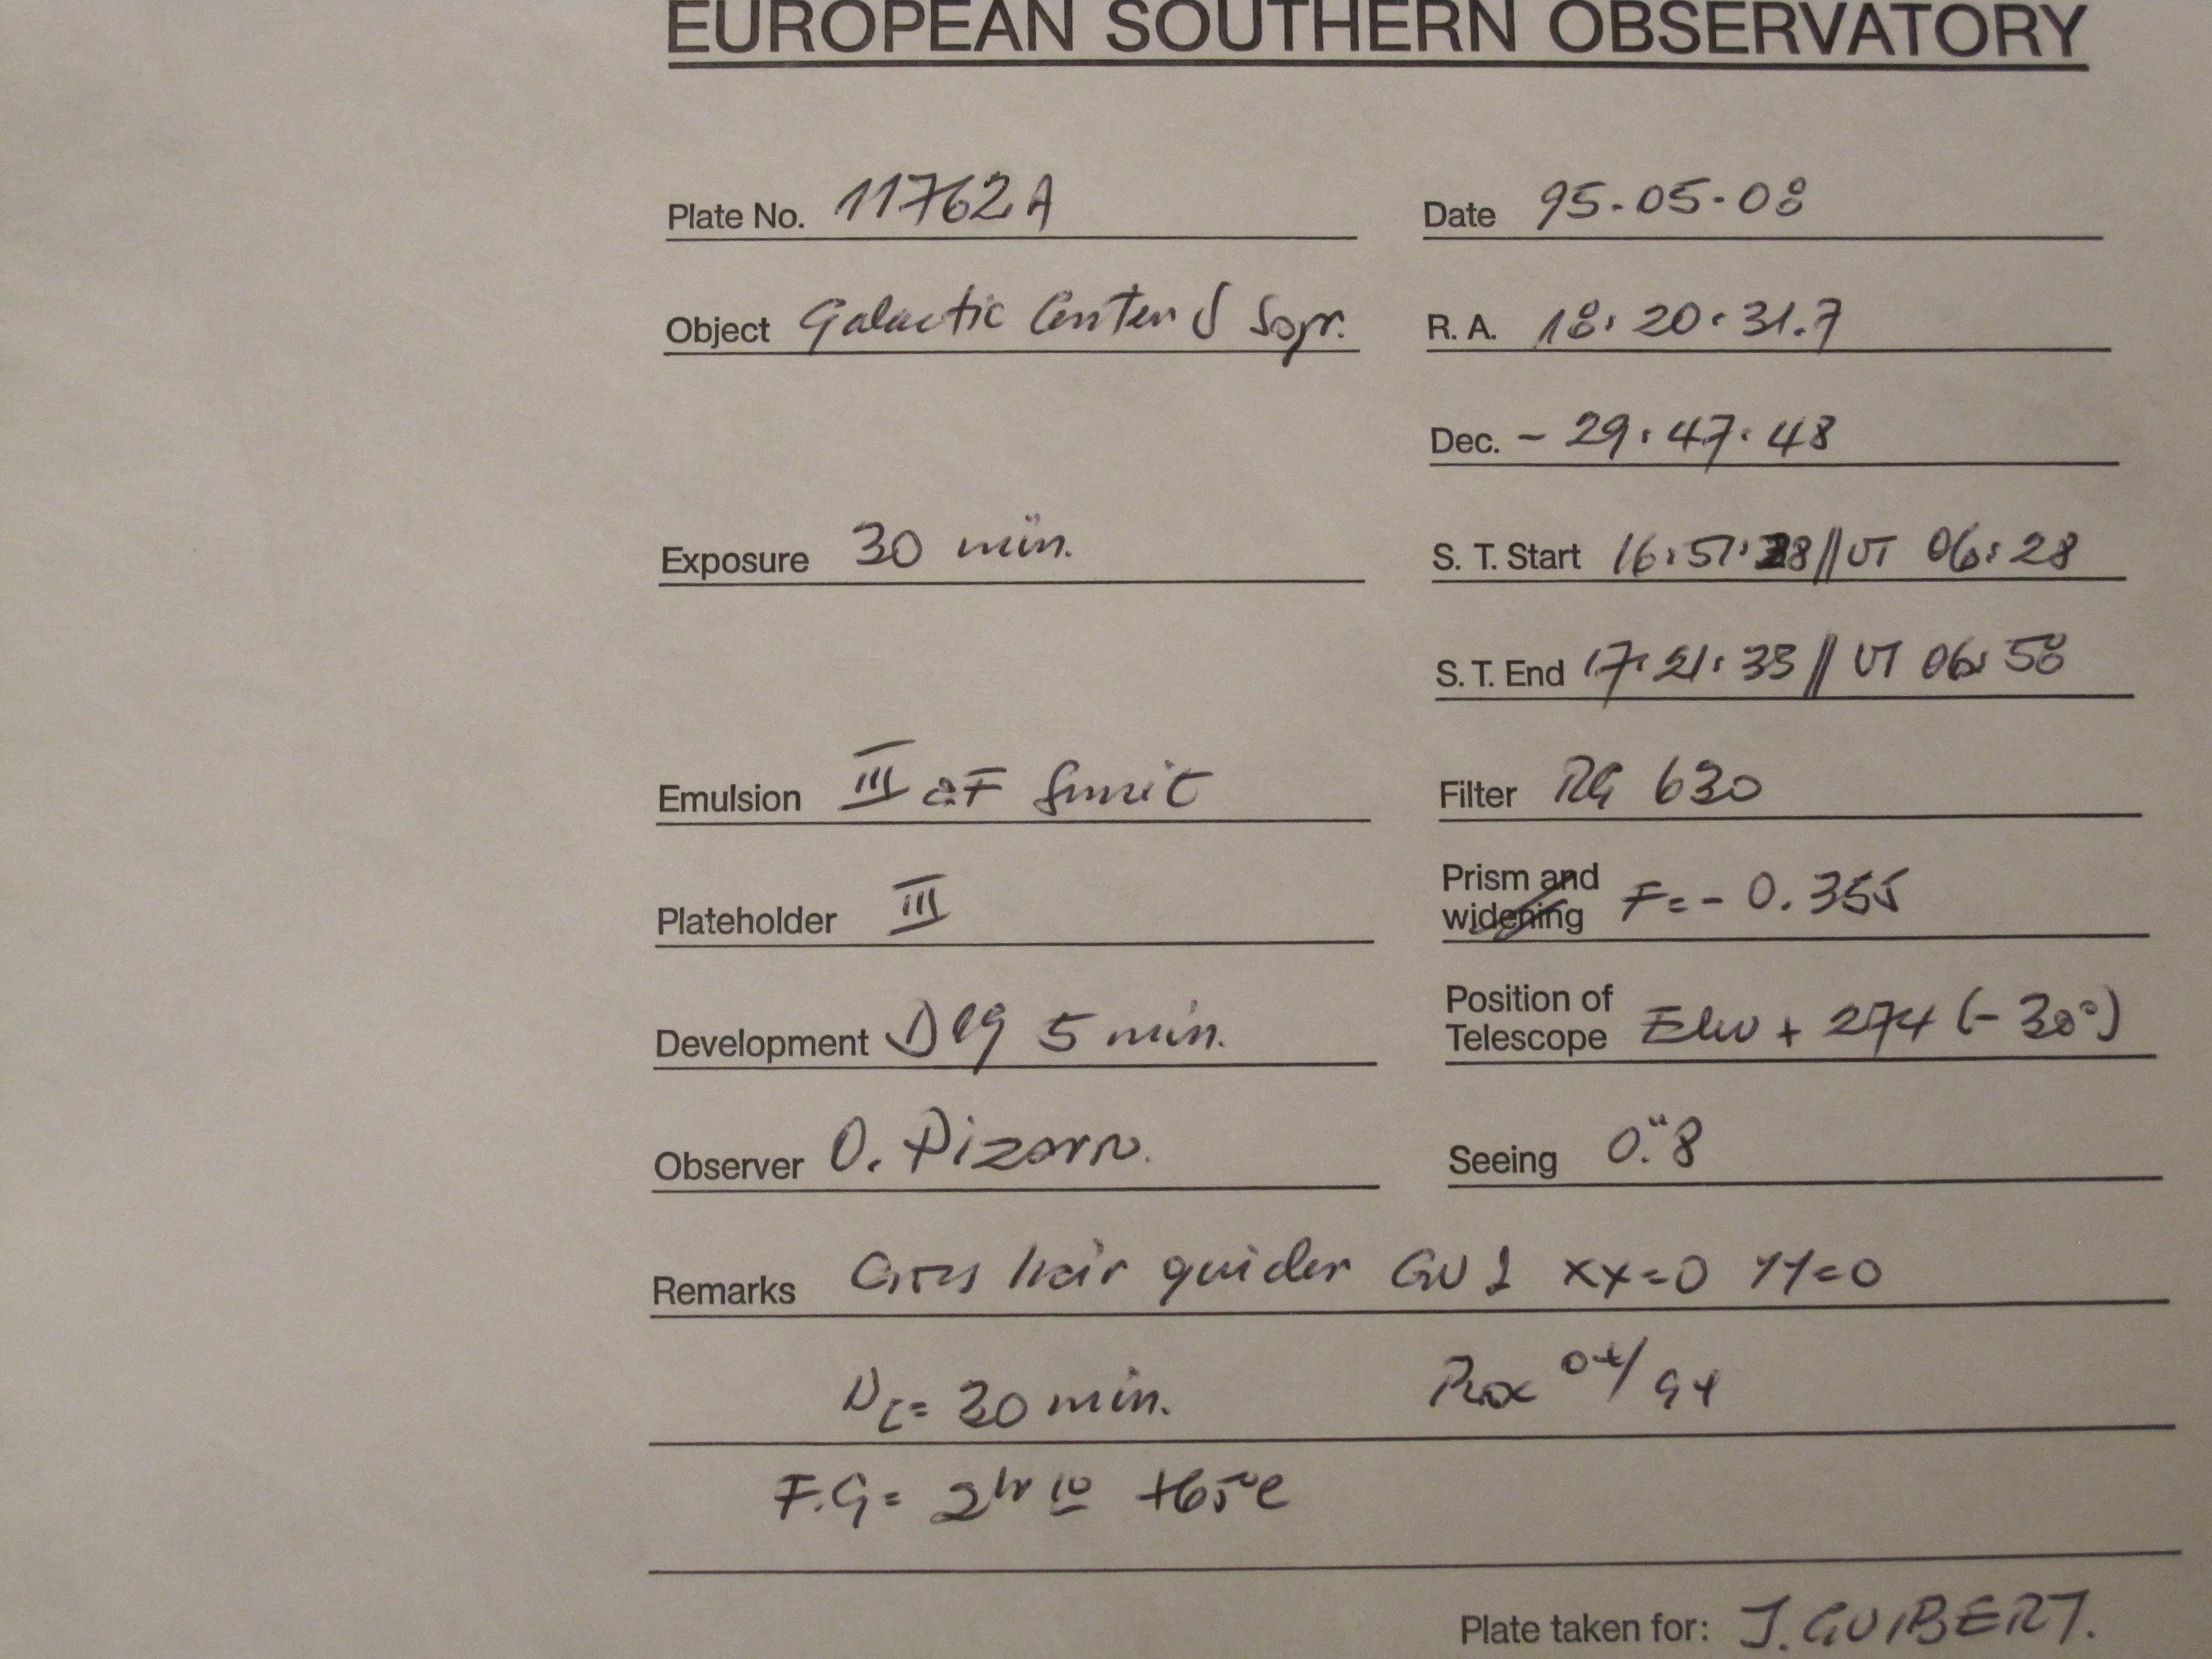 EUROPEAN SOUTHERN OBSERVATORY
Plate No. 11762A Date 95-05-08
Object Galactic Center S R. A. 18:20:31.7
Dec. - 29:47:48
Exposure 30 min. S. T. Start 16:51:28 // UT 06:28
S. T. End 17:21:33 // UT 06:58
Emulsion III aF Filter RG 630
Plateholder III Prism and widening F=- 0.355
Development D19 5 min. Position of Telescope + 274 (- 30°)
Observer O. Pizarro. Seeing 0."8
Remarks Cross hair guider GU 1 XX=0 YY=0
= 30 min.
F.G= 2hr 10 +65°C
Plate taken for: J. GUIBERT.